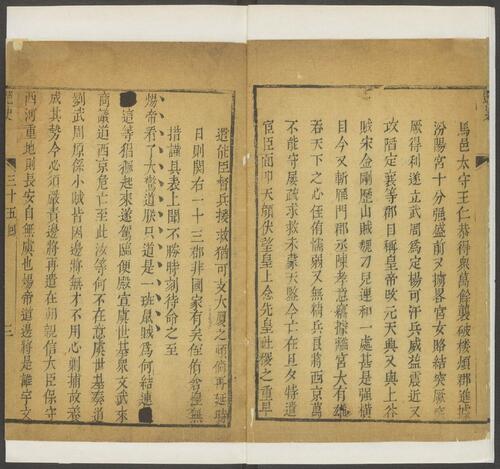 馬邑太守王仁恭得衆萬餘襲破樓煩郡進據
汾陽宮十分强盛前又擄畧宮女賂結突厥突
厥得利遂立武周爲定楊可汗兵威益震近又
攻陷定襄等郡自稱皇帝改元天興又與上谷
賊宋金剛歷山賊魏刁兒連和一處甚是强橫
目今又斬鴈門郡丞陳孝意竊據離宮大有幷
吞天下之心侄侑懦弱又無精兵良將西京萬
不能守屢疏求救未蒙天聽今亡在旦夕特遣
宦臣面叩天顔伏望皇上念先皇社稷之重早
遣能臣督兵援救猶可支大厦之傾倘再延時
日則關右一十三郡非國家有矣侄侑
措謹具表上聞不勝時刻待命之至
煬帝看了大驚道朕只道是一班鼠賊爲何結連
這等猖獗起來遂駕臨便殿宣虞世基衆文武來
商議道西京危亡至此汝等何不在意虞世基奏道
劉武周原係小賊皆因邊將無才不用心勦捕故養
成其勢今必須嚴責邊將再遣在朝親信大臣保守
西河重地則長安自無虞也煬帝道邊將是誰宇文
艷史
三十五回
三